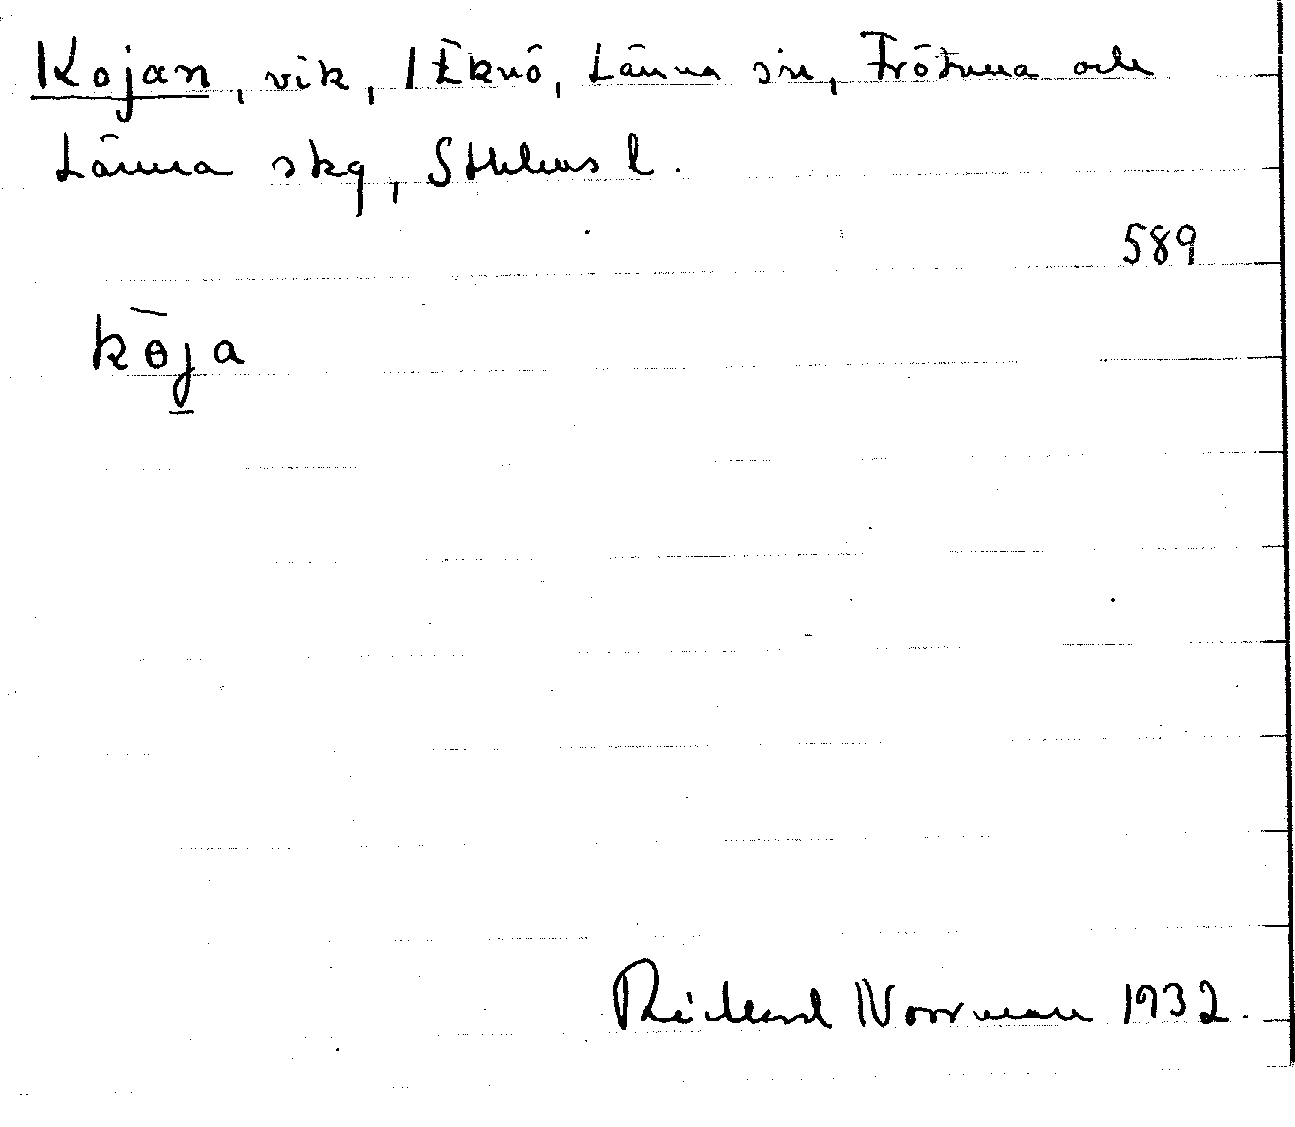 Kojan, vik, I Eknö, Länna sn, Frötuna och
Länna skg, Sthlms l.
589
kōja
Richard Norrman 1932.